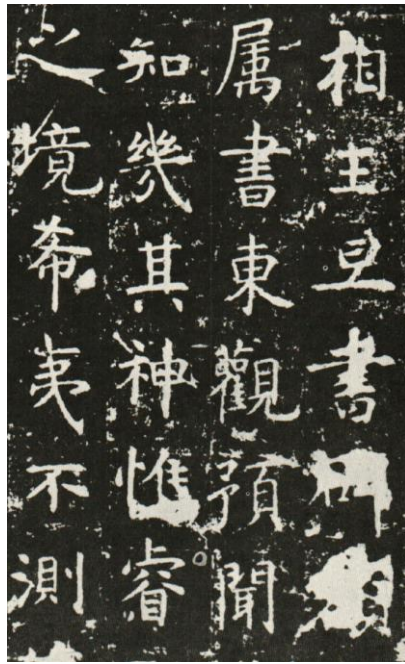 相王旦書碑額
属書東觀預聞
知幾其神惟睿
之境希夷不測